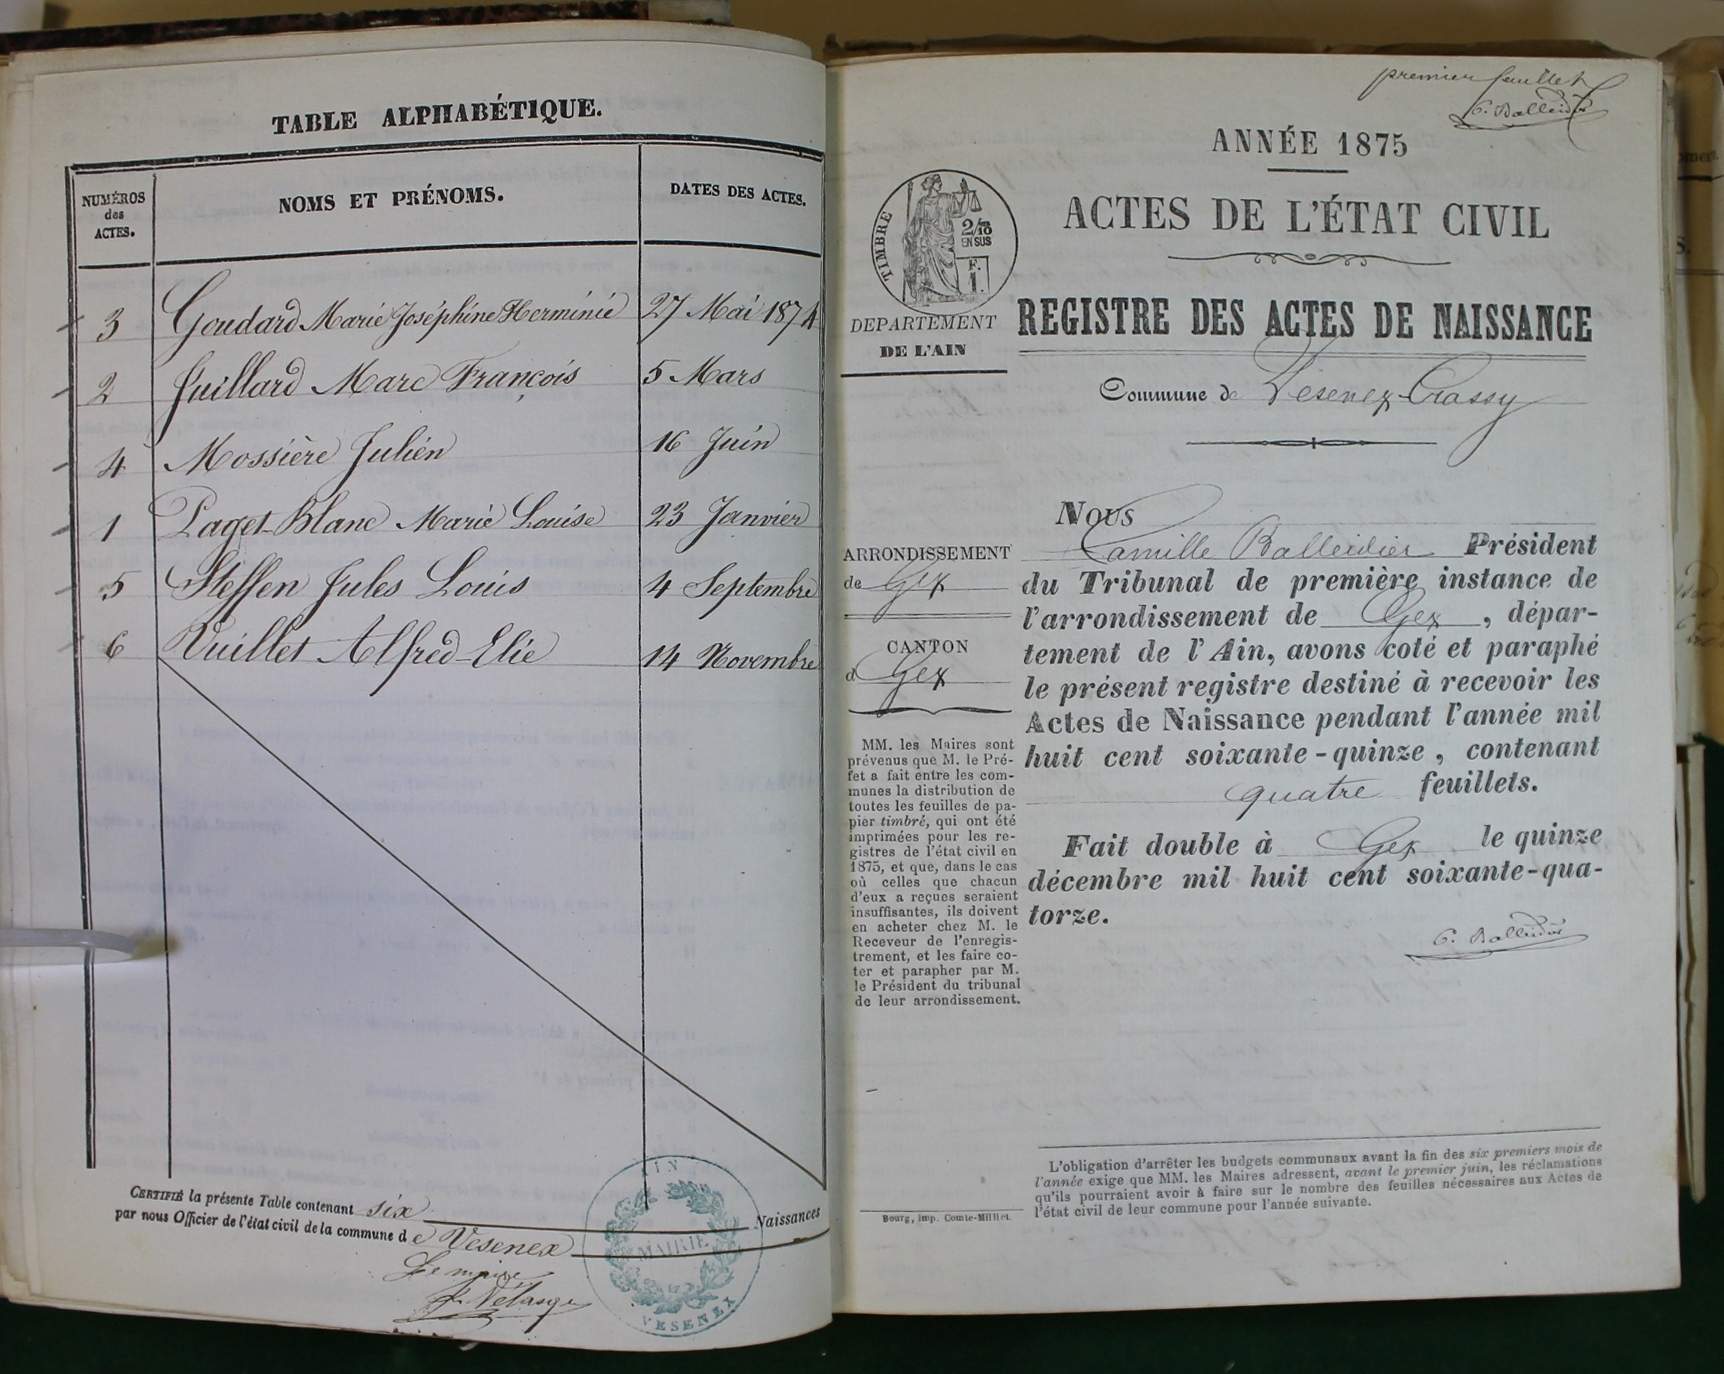 TABLE ALPHABÉTIQUE.
NUMÉROS des ACTES.
NOMS ET PRÉNOMS.
DATES DES ACTES.
3 Goudard Marie Joséphine Herminie 27 Mai 1874
2 Juillard Marc François 5 Mars
4 Mossière Julien 16 Juin
1 Paget-Blanc Marie Louise 23 Janvier
5 Steffen Jules Louis 4 Septembre
6 Vuillet Alfred-Elie 14 Novembre
CERTIFIÉ la présente Table contenant six Naissances
par nous Officier de l'état civil de la commune de Vesenex
Le maire
AIN
MAIRIE
VESENEX
premier feuillet
C. Balleidier
ANNÉE 1875
ACTES DE L'ÉTAT CIVIL
TIMBRE
2/10
EN SUS
F.
1.
REGISTRE DES ACTES DE NAISSANCE
DEPARTEMENT
DE L'AIN
Commune de Vesenex-Crassy
ARRONDISSEMENT
de Gex
CANTON
d Gex
MM. les Maires sont
prévenus que M. le Pré-
fet a fait entre les com-
munes la distribution de
toutes les feuilles de pa-
pier timbré, qui ont été
imprimées pour les re-
gistres de l'état civil en
1875, et que, dans le cas
où celles que chacun
d'eux a reçues seraient
insuffisantes, ils doivent
en acheter chez M. le
Receveur de l'enregis-
trement, et les faire co-
ter et parapher par M.
le Président du tribunal
de leur arrondissement.
NOUS
Camille Balleidier Président
du Tribunal de première instance de
l'arrondissement de Gex, dépar-
tement de l'Ain, avons coté et paraphé
le présent registre destiné à recevoir les
Actes de Naissance pendant l'année mil
huit cent soixante-quinze, contenant
quatre feuillets.
Fait double à Gex, le quinze
décembre mil huit cent soixante-qua-
torze.
C. Balleidier
Bourg, imp. Comte-Milliet.
L'obligation d'arrêter les budgets communaux avant la fin des six premiers mois de
l'année exige que MM. les Maires adressent, avant le premier juin, les réclamations
qu'ils pourraient avoir à faire sur le nombre des feuilles nécessaires aux Actes de
l'état civil de leur commune pour l'année suivante.